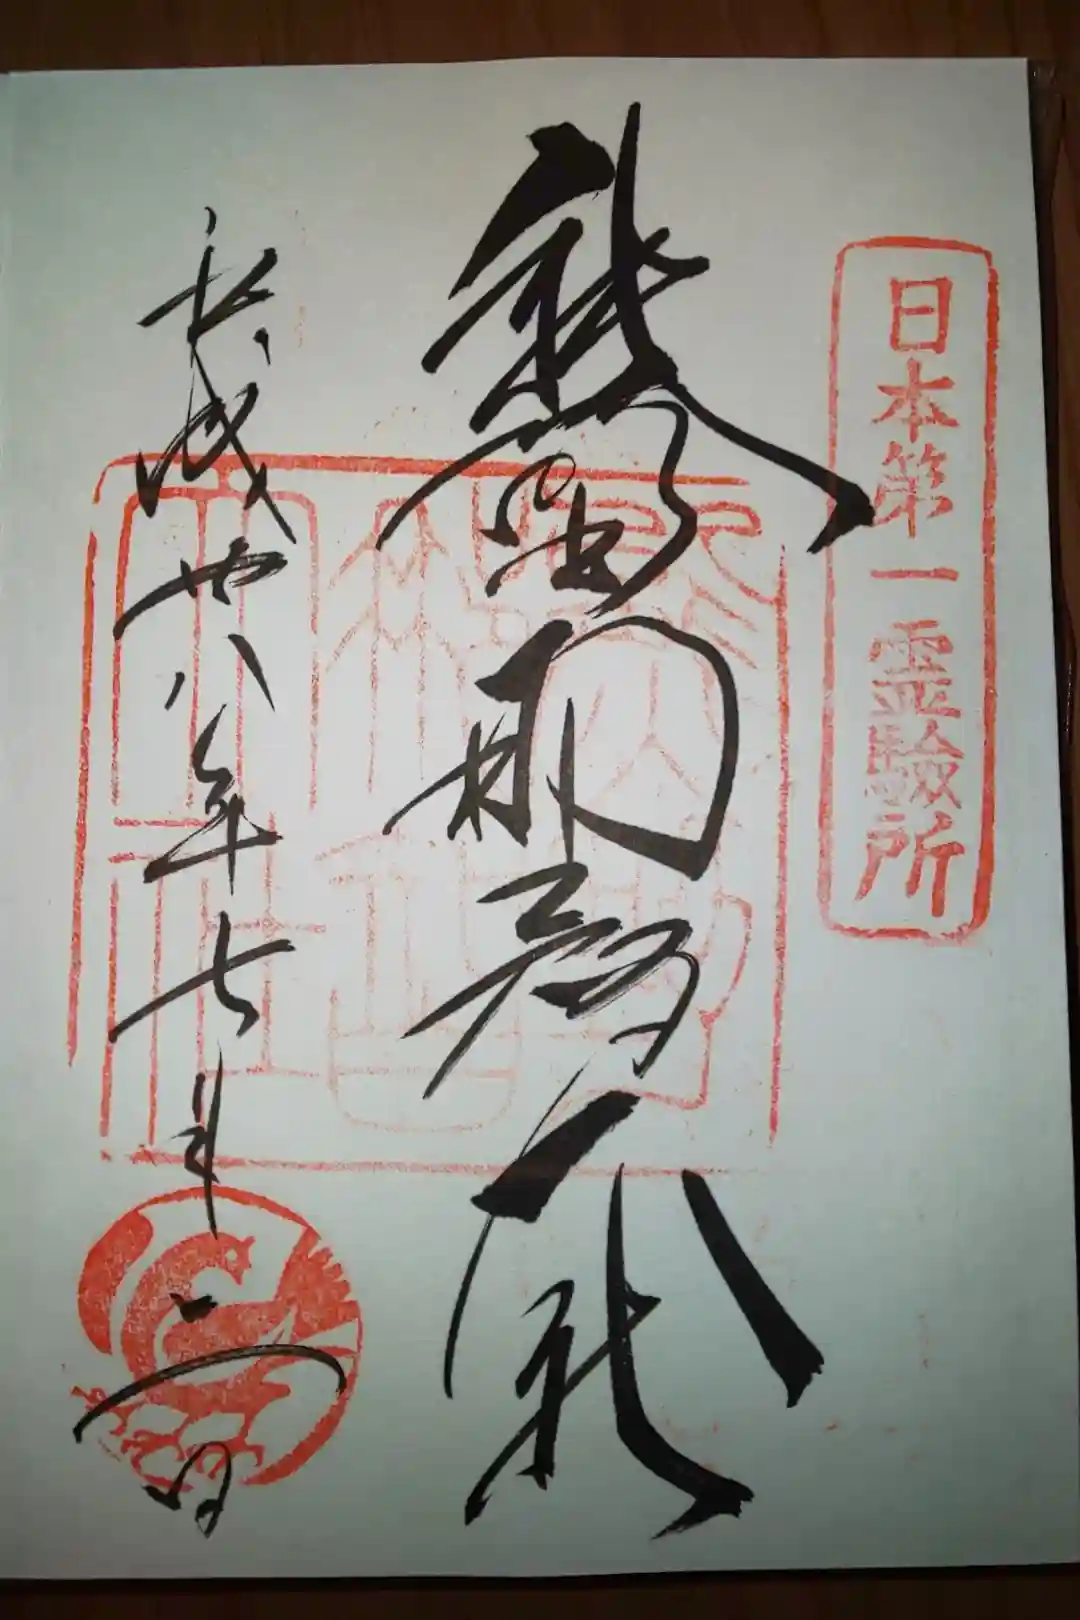 日本第一霊験所
熊野那智大社
平成廿八年七月二日